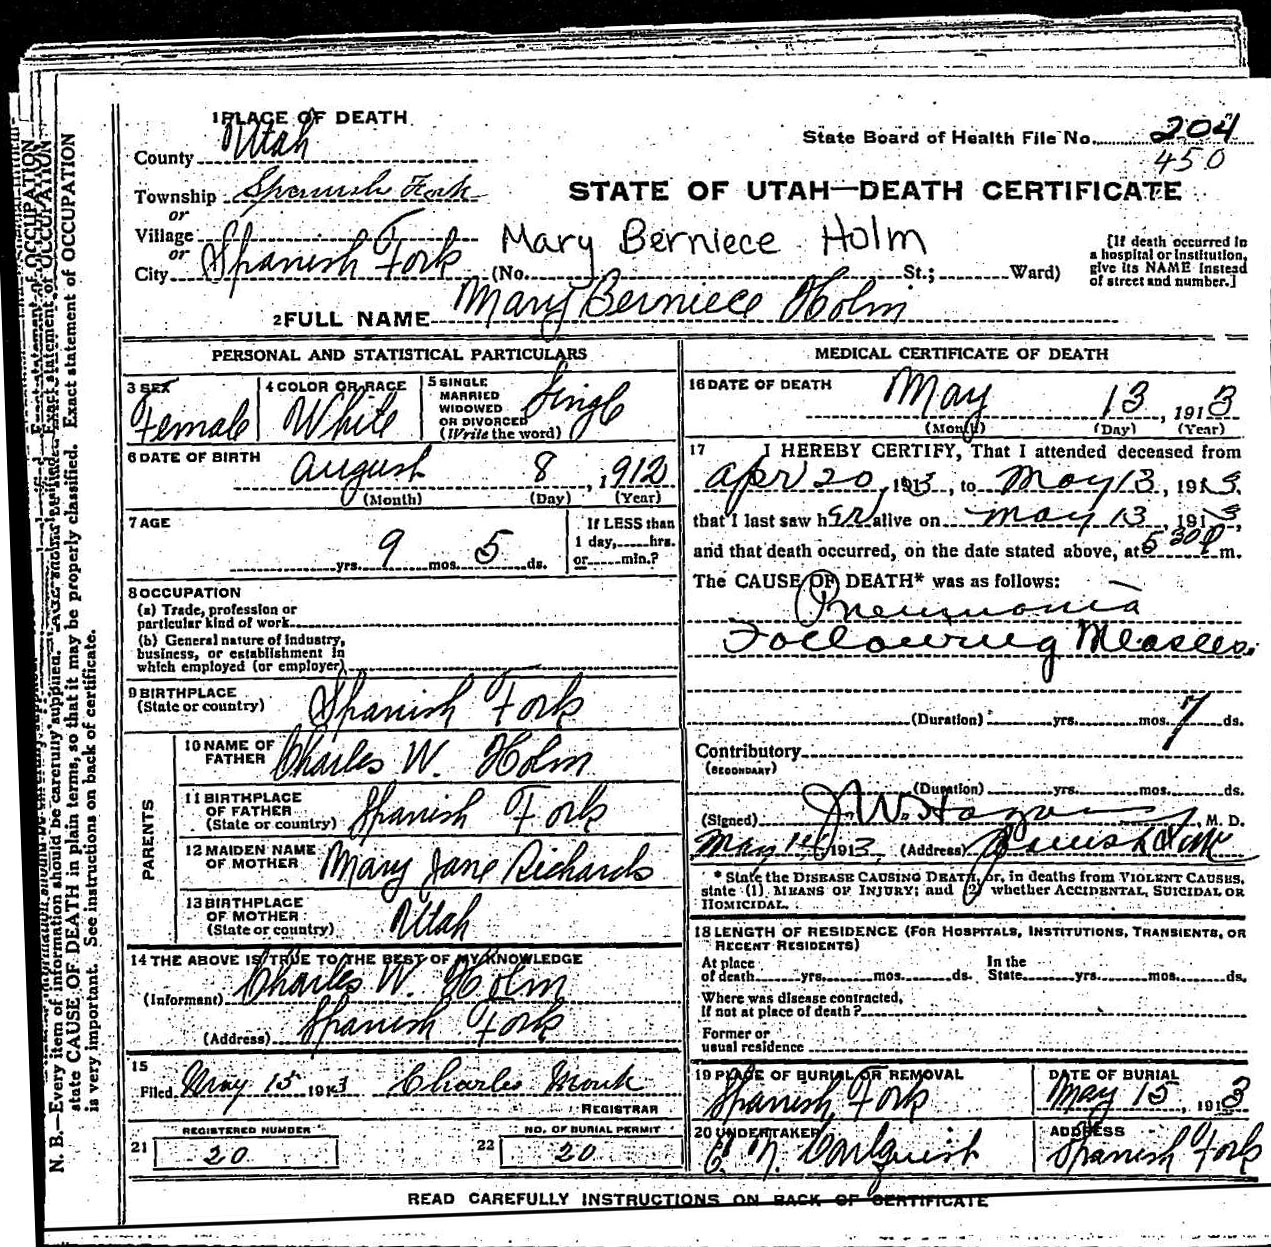 1 PLACE OF DEATH
County Utah
Township Spanish Fork
or
Village
or
City Spanish Fork (No. St.; Ward)
State Board of Health File No. 204
450
STATE OF UTAH—DEATH CERTIFICATE
Mary Berniece Holm
[If death occurred in
a hospital or institution,
give its NAME instead
of street and number.]
2 FULL NAME Mary Berniece Holm
PERSONAL AND STATISTICAL PARTICULARS
3 SEX
Female
4 COLOR OR RACE
White
5 SINGLE
MARRIED
WIDOWED
OR DIVORCED
(Write the word)
Single
6 DATE OF BIRTH
August 8, 1912
(Month) (Day) (Year)
7 AGE
yrs. 9 mos. 5 ds.
If LESS than
1 day, hrs.
or min.?
8 OCCUPATION
(a) Trade, profession or
particular kind of work
(b) General nature of industry,
business, or establishment in
which employed (or employer)
9 BIRTHPLACE
(State or country)
Spanish Fork
PARENTS
10 NAME OF
FATHER
Charles W. Holm
11 BIRTHPLACE
OF FATHER
(State or country)
Spanish Fork
12 MAIDEN NAME
OF MOTHER
Mary Jane Richards
13 BIRTHPLACE
OF MOTHER
(State or country)
Utah
14 THE ABOVE IS TRUE TO THE BEST OF MY KNOWLEDGE
(Informant) Charles W. Holm
(Address) Spanish Fork
15
Filed May 15 1913 Charles Monk
REGISTRAR
21 REGISTERED NUMBER
20
22 NO. OF BURIAL PERMIT
20
MEDICAL CERTIFICATE OF DEATH
16 DATE OF DEATH
May 13, 1913
(Month) (Day) (Year)
17 I HEREBY CERTIFY, That I attended deceased from
Apr 20, 1913, to May 13, 1913,
that I last saw her alive on May 13, 1913,
and that death occurred, on the date stated above, at 5 30 P m.
The CAUSE OF DEATH* was as follows:
Pneumonia
Following Measles.
(Duration) yrs. mos. 7 ds.
Contributory
(SECONDARY)
(Duration) yrs. mos. ds.
(Signed) J. W. Hagan, M. D.
May 14 1913. (Address) Spanish Fork
* State the DISEASE CAUSING DEATH, or, in deaths from VIOLENT CAUSES,
state (1) MEANS OF INJURY; and (2) whether ACCIDENTAL, SUICIDAL OR
HOMICIDAL.
18 LENGTH OF RESIDENCE (FOR HOSPITALS, INSTITUTIONS, TRANSIENTS, OR
RECENT RESIDENTS)
At place
of death yrs. mos. ds.
In the
State yrs. mos. ds.
Where was disease contracted,
If not at place of death?
Former or
usual residence
19 PLACE OF BURIAL OR REMOVAL
Spanish Fork
DATE OF BURIAL
May 15, 1913
20 UNDERTAKER
C. N. Carlquist
ADDRESS
Spanish Fork
READ CAREFULLY INSTRUCTIONS ON BACK OF CERTIFICATE
N. B.—Every item of information should be carefully supplied.
state CAUSE OF DEATH in plain terms, so that it may be properly classified. Exact statement of OCCUPATION
is very important. See instructions on back of certificate.